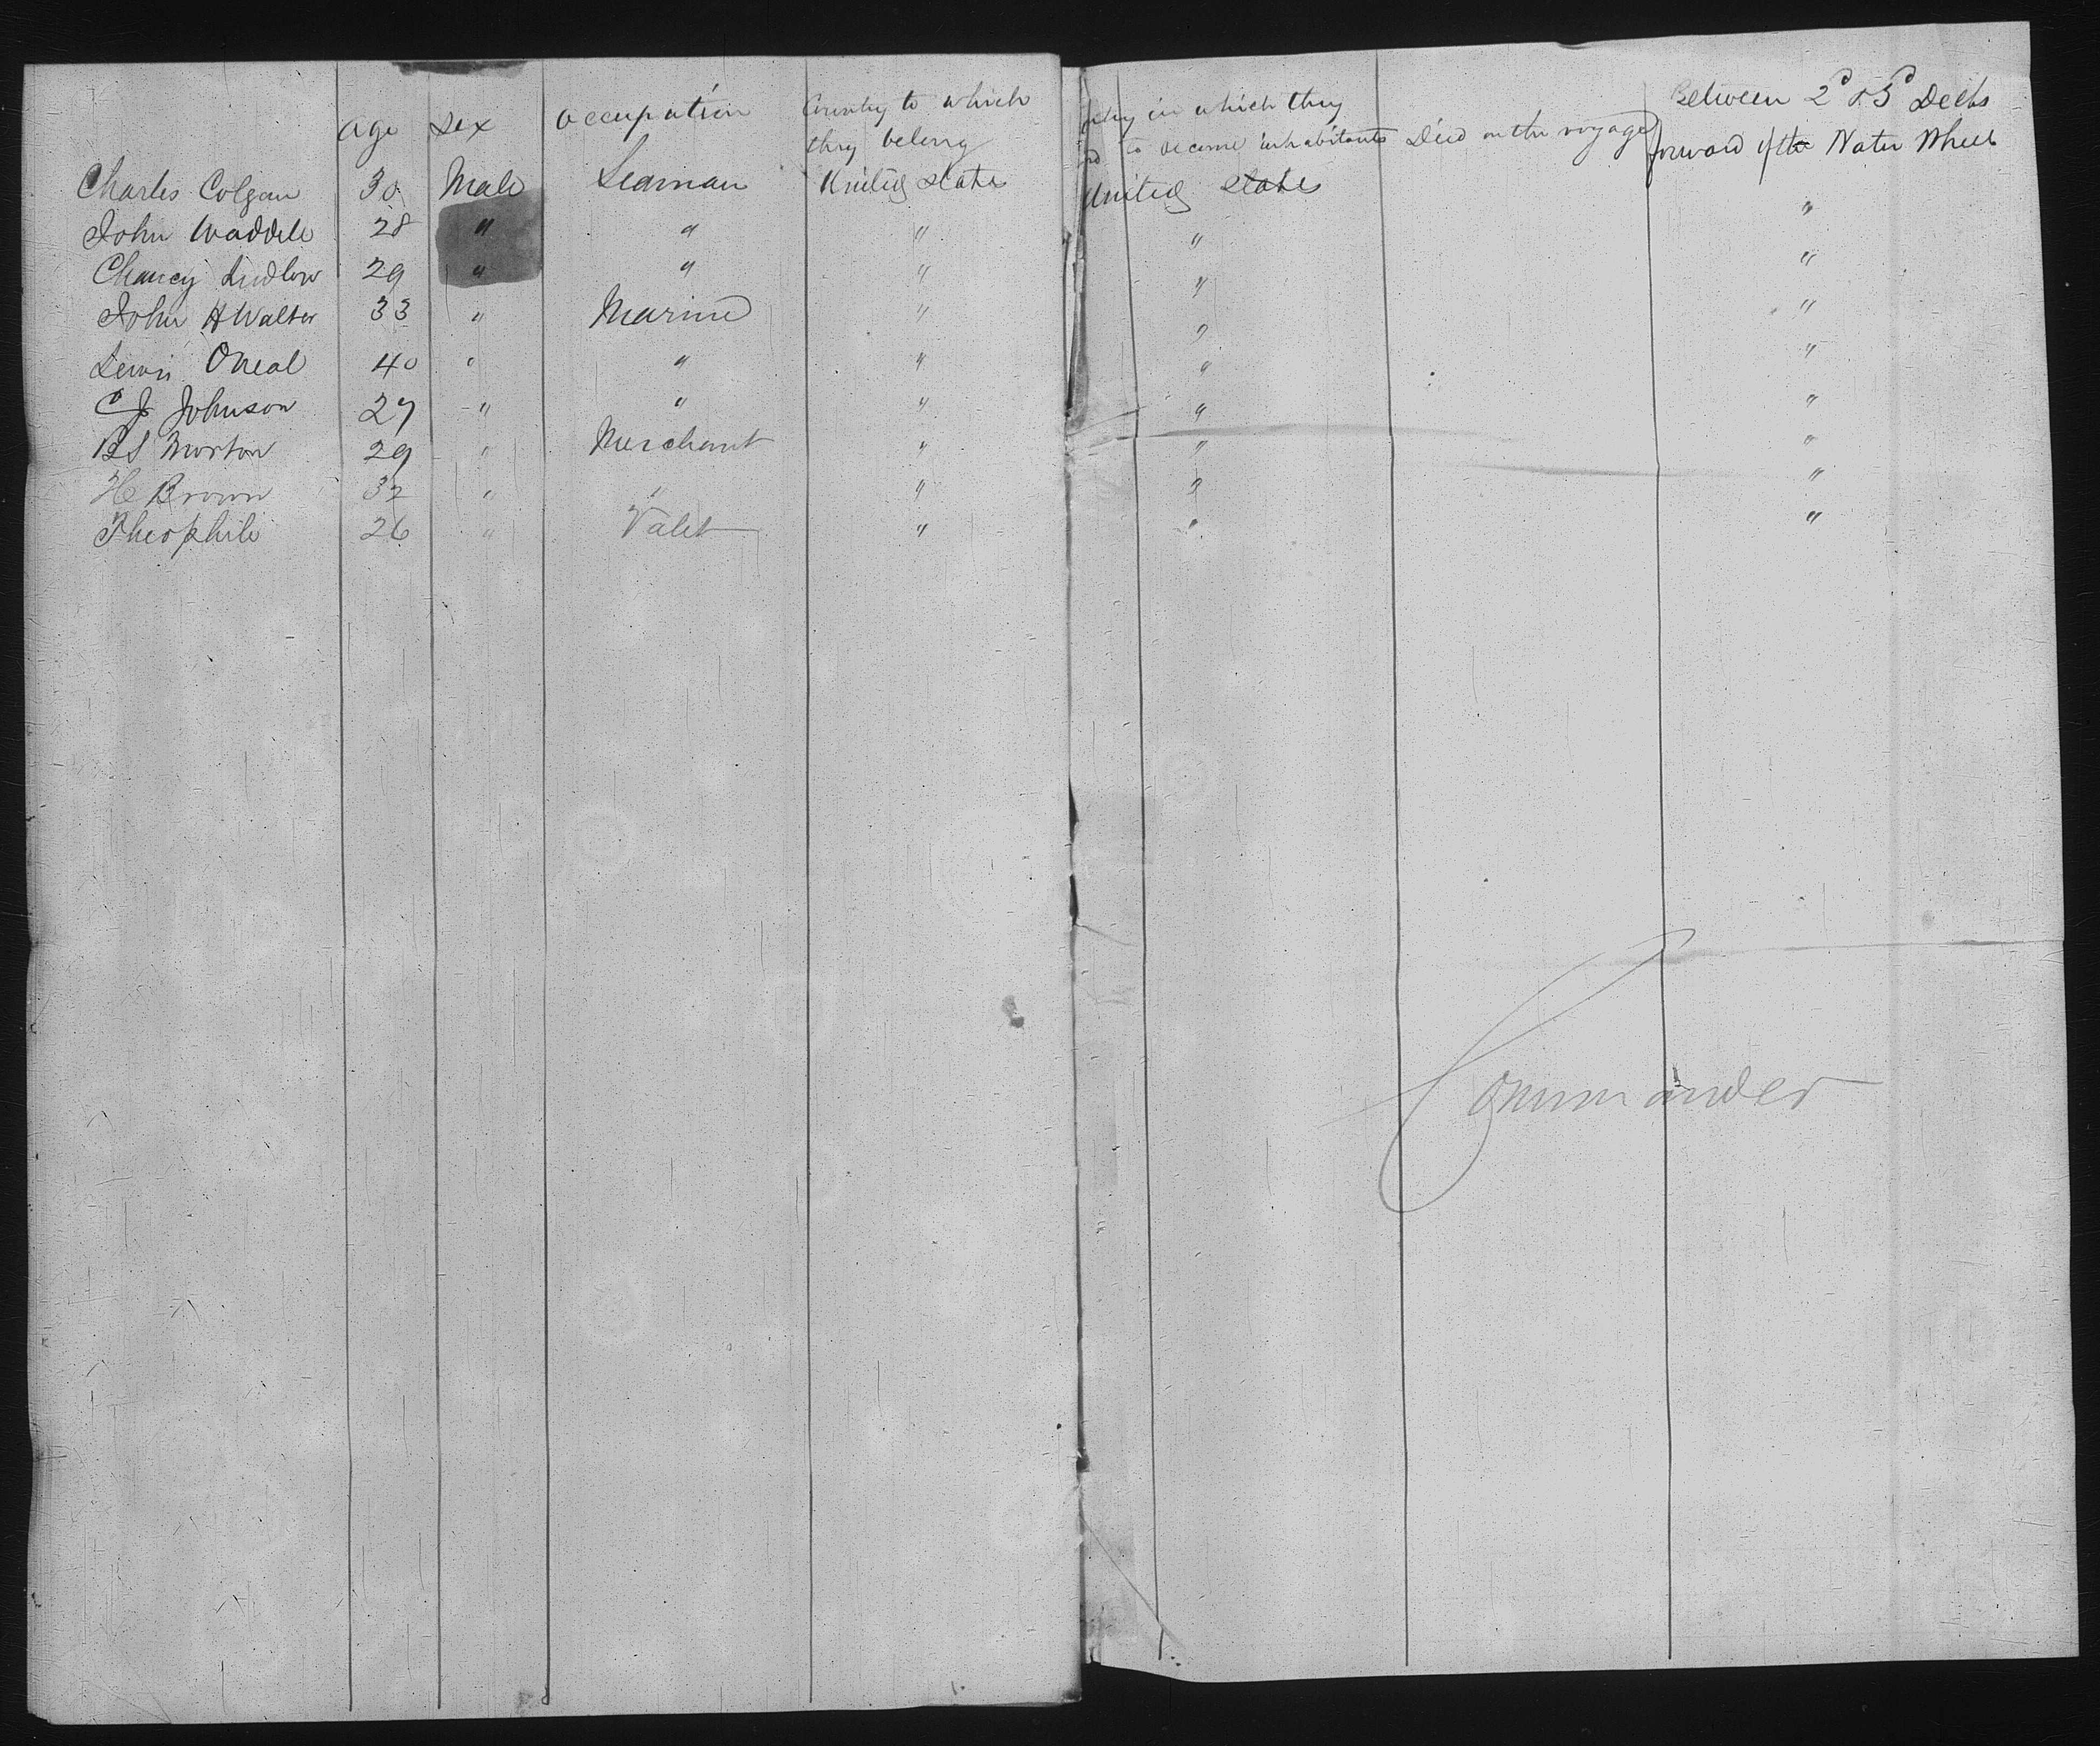 age sex occupation Country to which they belong
in which they to become inhabitants Died on the voyage Between 2d & 3d Decks forward of the Water Wheels
Charles Colgan 30 Male Seaman United States United States "
John Waddell 28 " " " " "
Chancy Ludlow 29 " " " " "
John H Walter 33 " Marine " " "
Lewis Oneal 40 " " " " "
C J Johnson 27 " " " " "
B S Morton 29 " Merchant " " "
H Brown 32 " " " " "
Theophile 26 " Valet " "
Commander